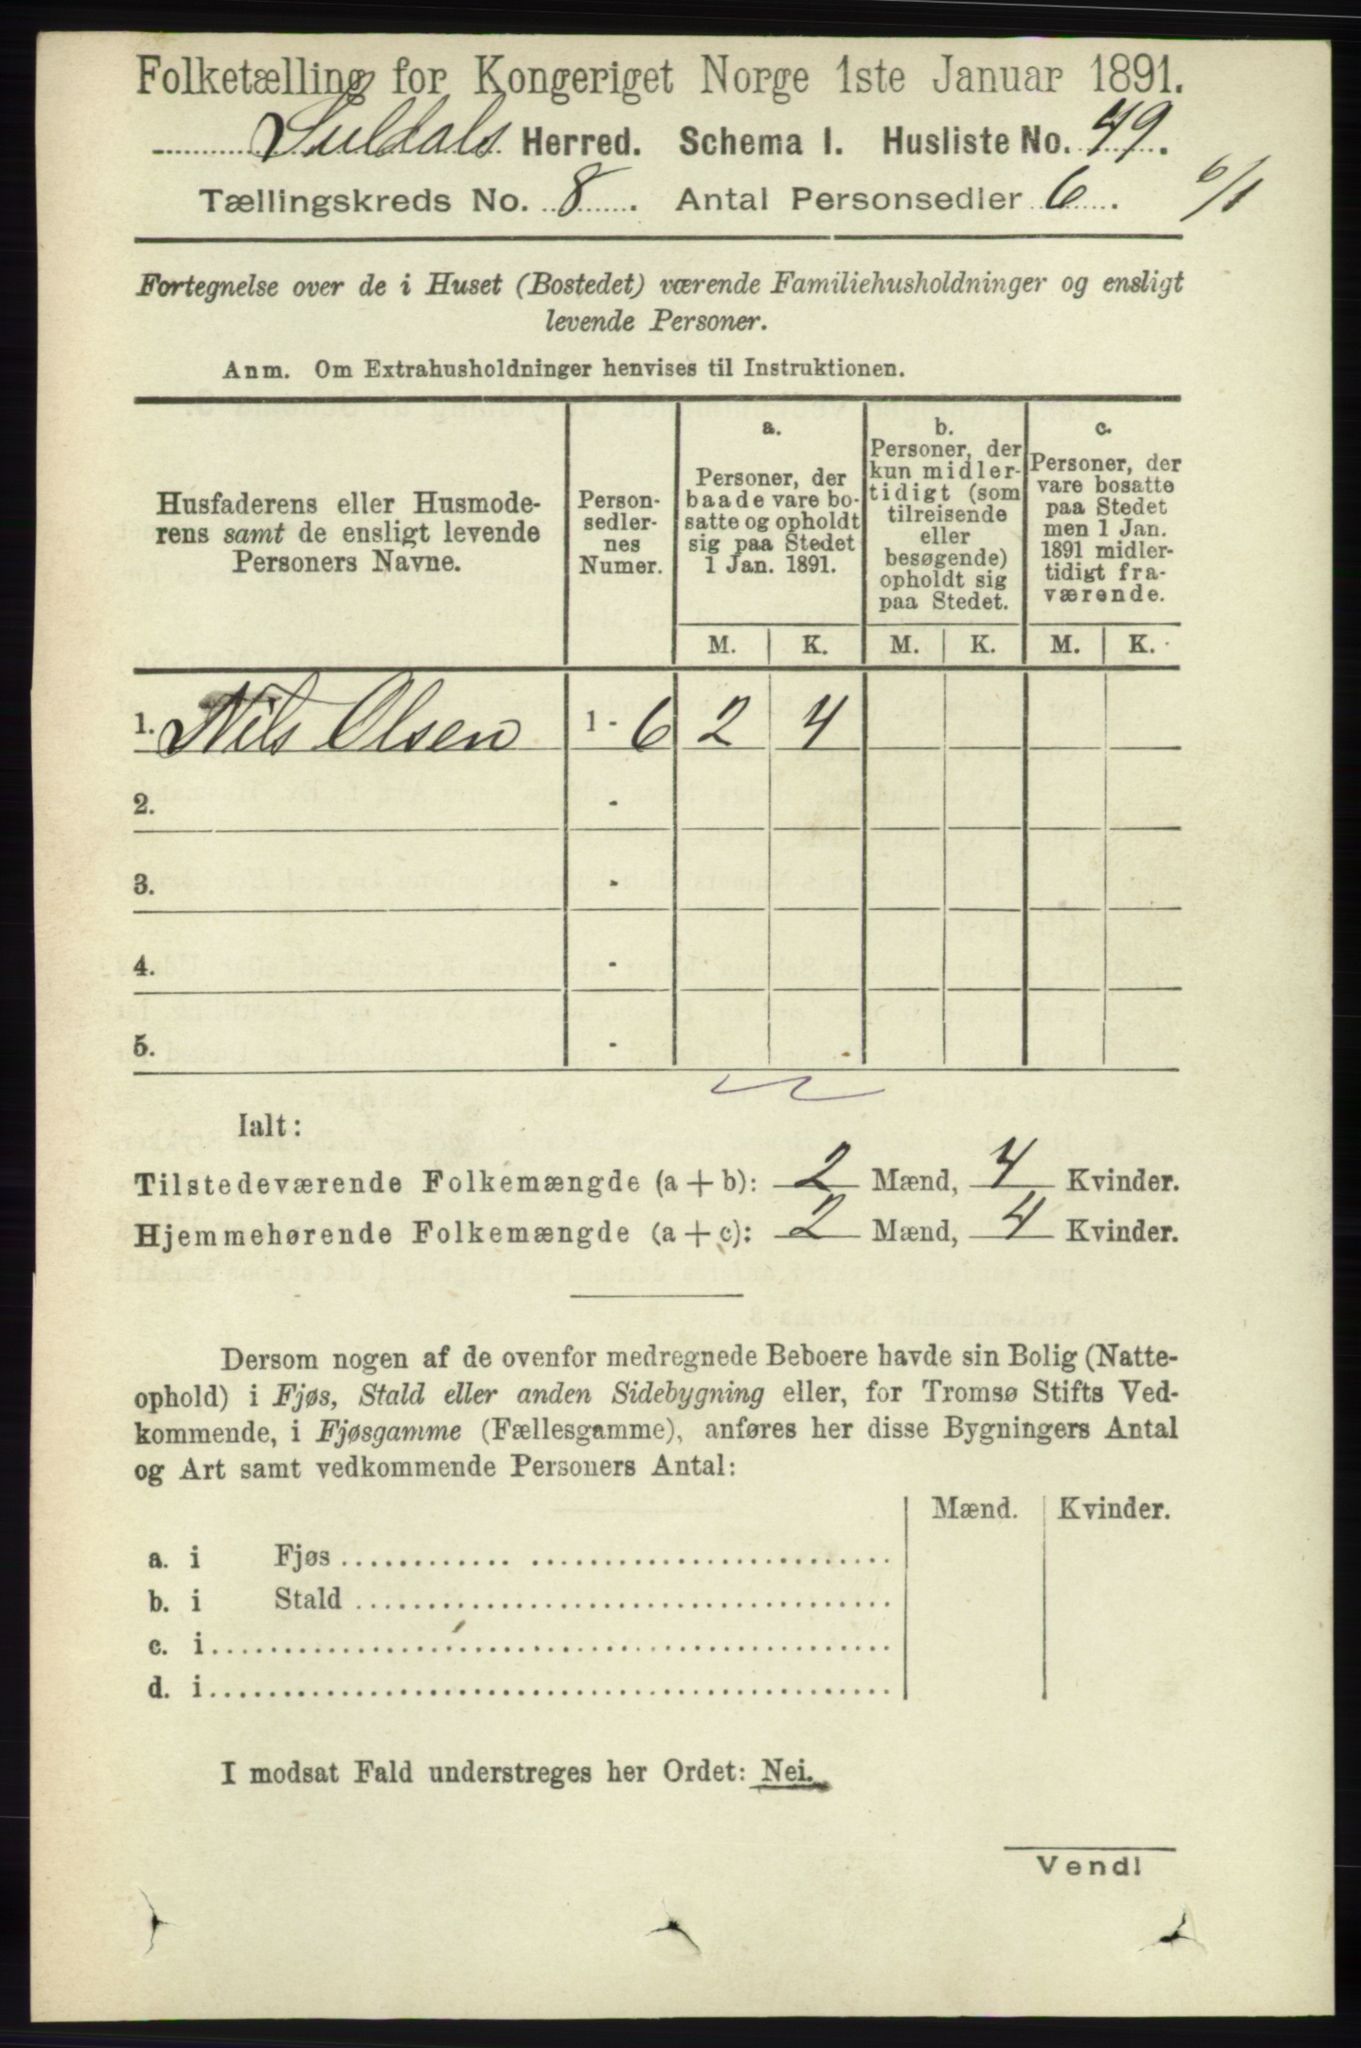 Folketælling for Kongeriget Norge 1ste Januar 1891.
Suldals Herred. Schema I. Husliste No. 49.
Tællingskreds No. 8. Antal Personsedler 6. 6/1
Fortegnelse over de i Huset (Bostedet) værende Familiehusholdninger og ensligt
levende Personer.
Anm. Om Extrahusholdninger henvises til Instruktionen.
Husfaderens eller Husmode-
rens samt de ensligt levende
Personers Navne.
Person-
sedler-
nes
Numer.
a.
Personer, der
baade vare bo-
satte og opholdt
sig paa Stedet
1 Jan. 1891.
b.
Personer, der
kun midler-
tidigt (som
tilreisende
eller
besøgende)
opholdt sig
paa Stedet.
c.
Personer, der
vare bosatte
paa Stedet
men 1 Jan.
1891 midler-
tidigt fra-
værende.
M. K. M. K. M. K.
1. Nils Olsen 1 - 6 2 4
2. -
3. -
4. -
5. -
Ialt:
Tilstedeværende Folkemængde (a + b): 2 Mænd, 4 Kvinder.
Hjemmehørende Folkemængde (a + c): 2 Mænd, 4 Kvinder.
Dersom nogen af de ovenfor medregnede Beboere havde sin Bolig (Natte-
ophold) i Fjøs, Stald eller anden Sidebygning eller, for Tromsø Stifts Ved-
kommende, i Fjøsgamme (Fællesgamme), anføres her disse Bygningers Antal
og Art samt vedkommende Personers Antal:
Mænd. Kvinder.
a. i Fjøs
b. i Stald
c. i
d. i
I modsat Fald understreges her Ordet: Nei.
Vend!